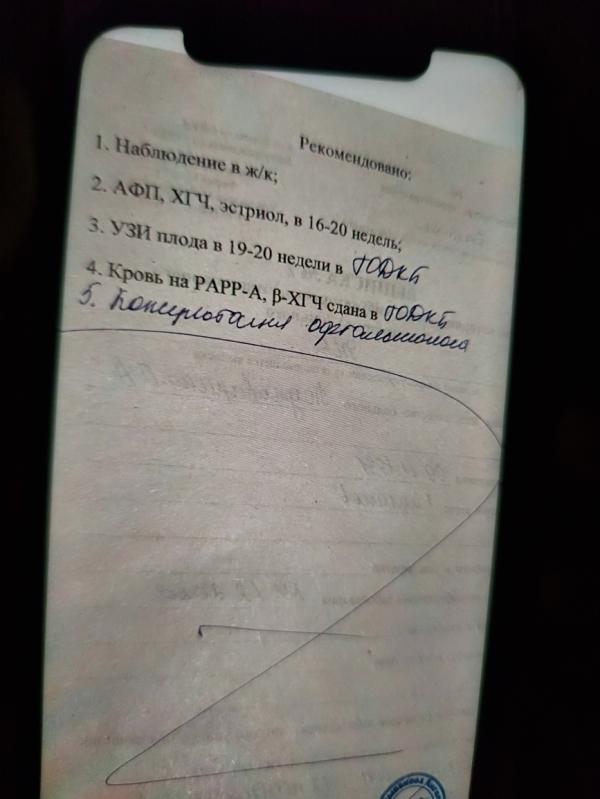 Рекомендовано:
1. Наблюдение в ж/к;
2. АФП, ХГЧ, эстриол, в 16-20 недель;
3. УЗИ плода в 19-20 недели в ГОДКБ
4. Кровь на РАРР-А, β-ХГЧ сдана в ГОДКБ
5. Консультация офтальмолога